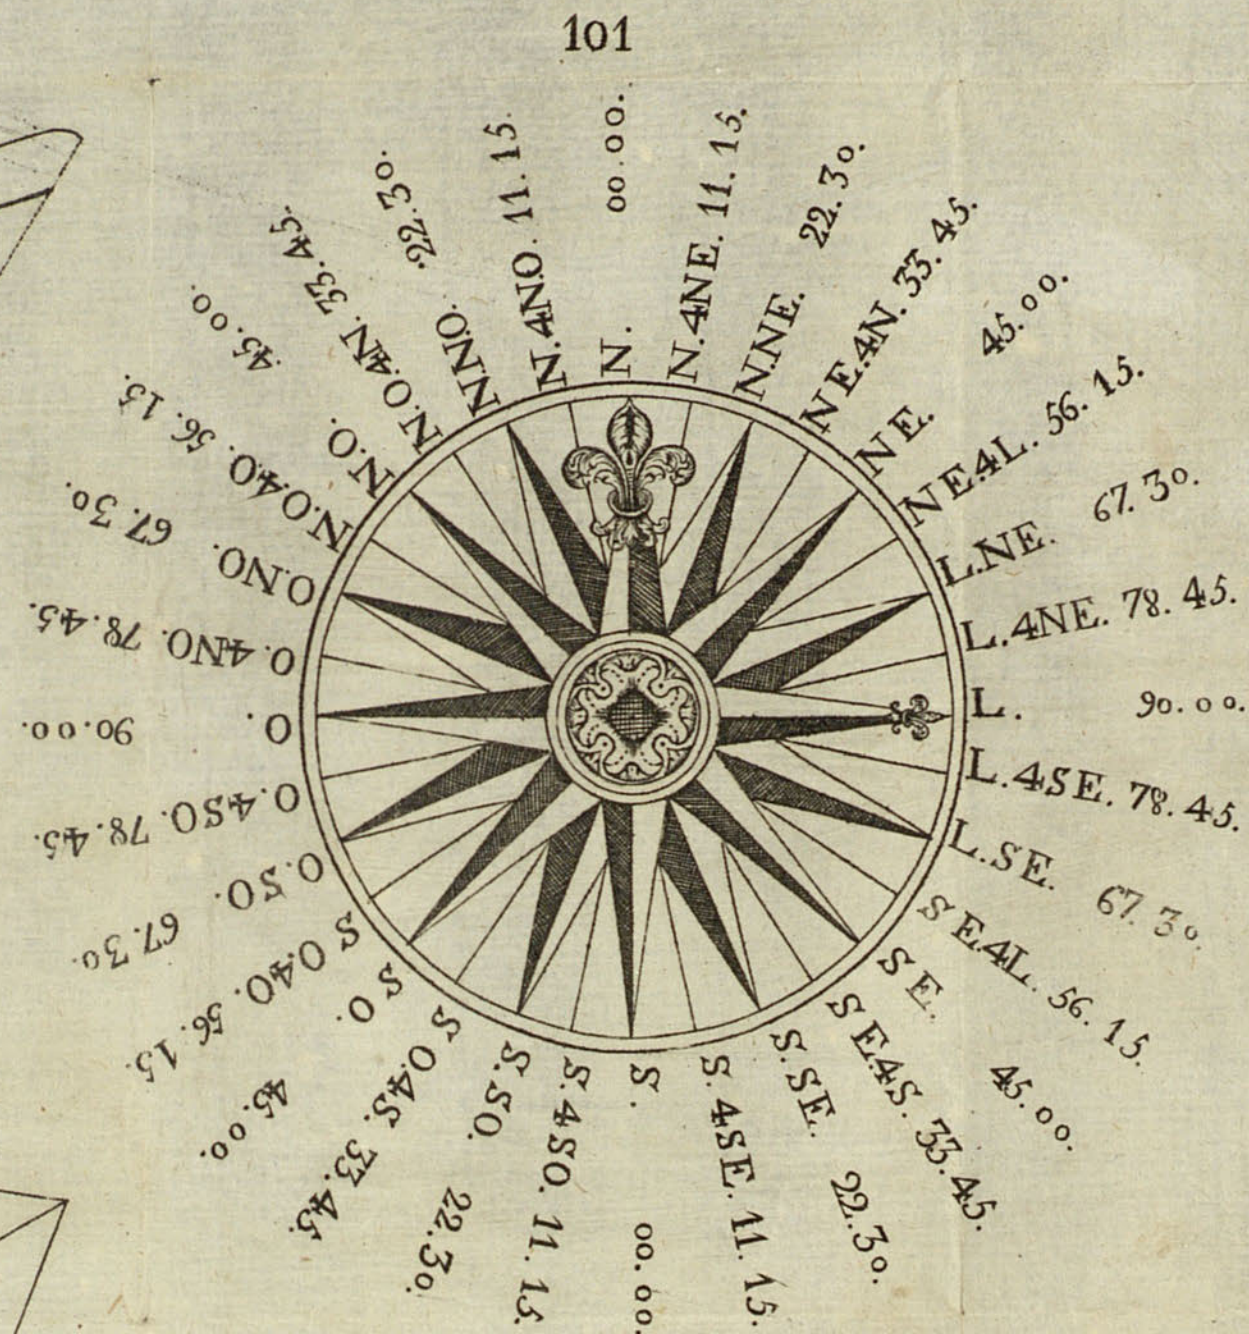 101
N. 00.00.
N.4NE. 11.15.
N.NE. 22.30.
NE.4N. 33.45.
NE. 45.00.
NE.4L. 56.15.
L.NE. 67.30.
L.4NE. 78.45.
L. 90.00.
L.4SE. 78.45.
L.SE. 67.30.
SE.4L. 56.15.
SE. 45.00.
SE.4S. 33.45.
S.SE. 22.30.
S.4SE. 11.15.
S. 00.00.
S.4SO. 11.15.
S.SO. 22.30.
SO.4S. 33.45.
SO. 45.00.
SO.4O. 56.15.
O.SO. 67.30.
O.4SO. 78.45.
O. 90.00.
O.4NO. 78.45.
O.NO. 67.30.
N.O.4O. 56.15.
N.O. 45.00.
N.O.4N. 33.45.
N.NO. 22.30.
N.4NO. 11.15.